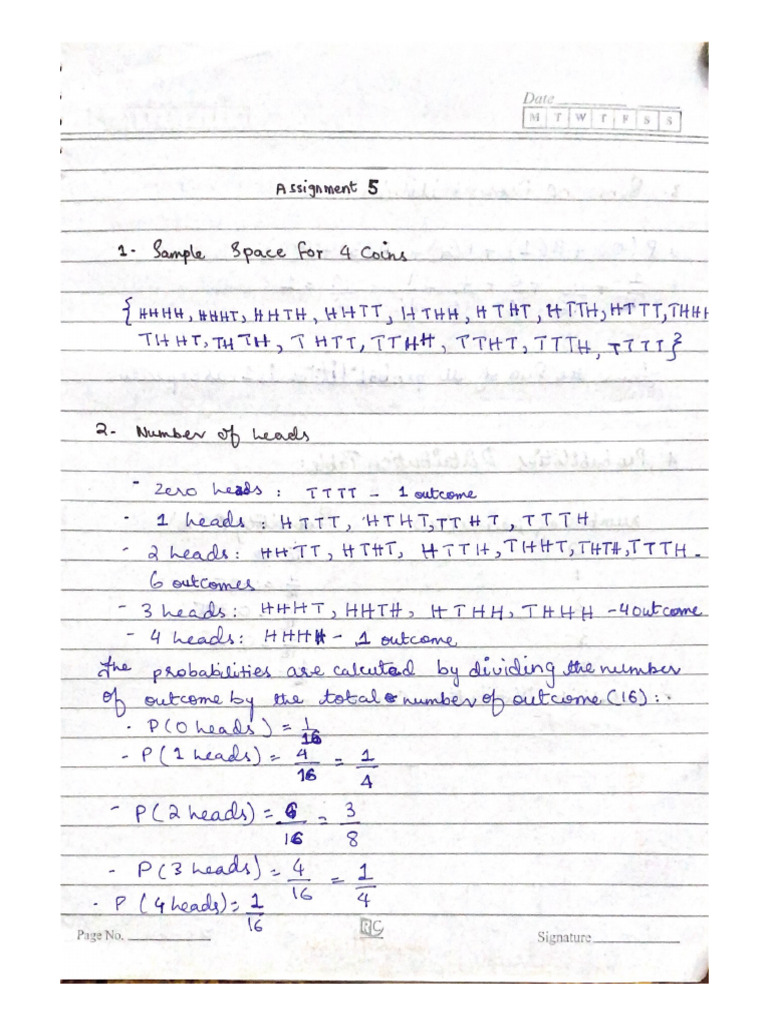 Date
M T W T F S S
Assignment 5
1- Sample Space for 4 Coins
{HHHH, HHHT, HHTH, HHTT, HTHH, HTHT, HTTH, HTTT, THHH
THHT, THTH, THTT, TTHH, TTHT, TTTH, TTTT}
2- Number of heads
- Zero heads : TTTT - 1 outcome
- 1 heads : HTTT, HTHT, TTHT, TTTH
- 2 heads : HHTT, HTHT, HTTH, THHT, THTH, TTTH -
6 outcomes
- 3 heads : HHHT, HHTH, HTHH, THHH - 4 outcome
- 4 heads : HHHH - 1 outcome
The probabilities are calcuted by dividing the number
of outcome by the total number of outcome (16) :-
- P(0 heads) = 1/16
- P(1 heads) = 4/16 = 1/4
- P(2 heads) = 6/16 = 3/8
- P(3 heads) = 4/16 = 1/4
- P(4 heads) = 1/16
Page No. RC Signature